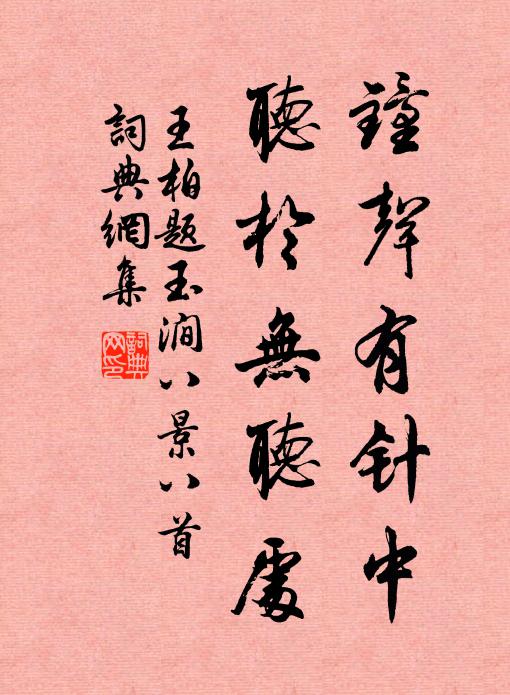 鐘聲有针中
聽於無聽處
王柏題玉澗八景八首
詞典網集
詞典
网印